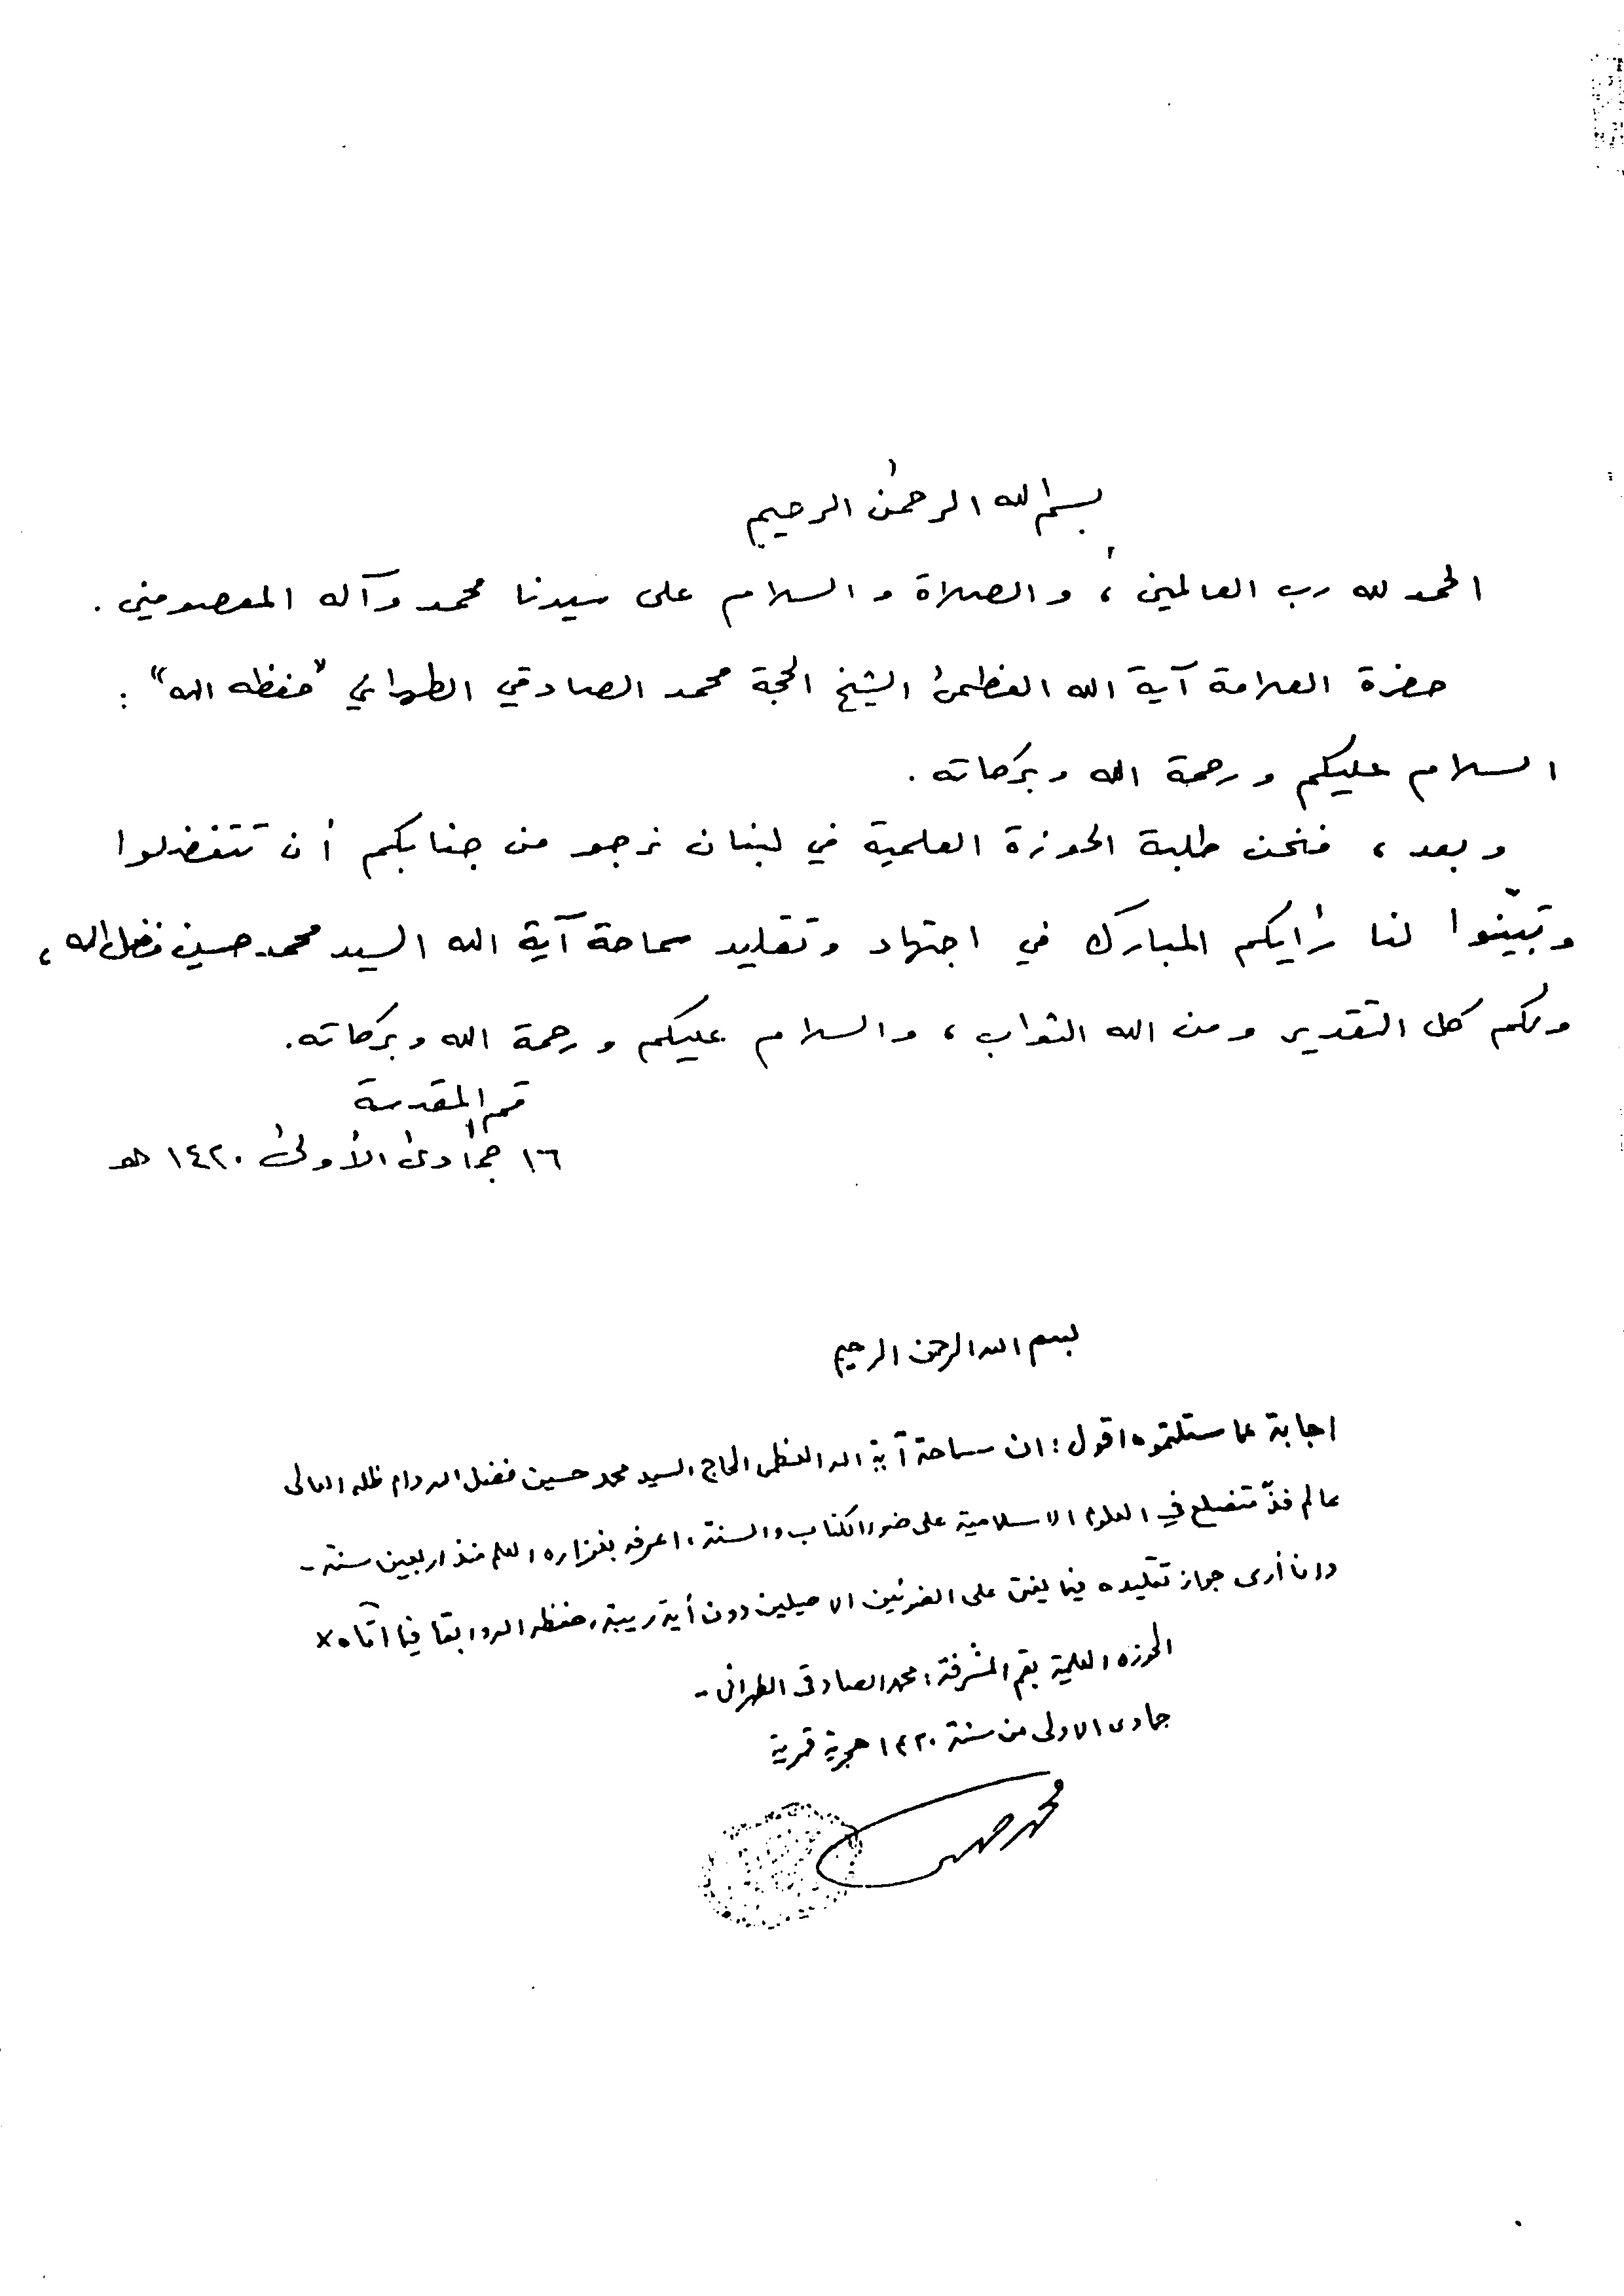 بسم الله الرحمٰن الرحيم
الحمد لله رب العالمين ، والصلاة والسلام على سيدنا محمد وآله المعصومين .
حضرة العلامة آية الله العظمىٰ الشيخ الحجة محمد الصادقي الطهراني "حفظه الله" :
السلام عليكم ورحمة الله وبركاته .
وبعد ، فنحن طلبة الحوزة العلمية في لبنان نرجو من جنابكم أن تتفضلوا
وتبيّنوا لنا رأيكم المبارك في اجتهاد وتقليد سماحة آية الله السيد محمد حسين فضل الله ،
ولكم كل التقدير ومن الله الثواب ، والسلام عليكم ورحمة الله وبركاته .
قم المقدسة
١٦ جمادىٰ الأولىٰ ١٤٢٠ هـ
بسم الله الرحمن الرحيم
اجابة عما سئلتموه اقول : ان سماحة آية الله العظمى الحاج السيد محمد حسين فضل الله دام ظله العالى
عالم فذّ متضلع في العلوم الاسلامية على ضوء الكتاب والسنة ، اعرفه بغزاره العلم منذ اربعين سنة -
وانا أرى جواز تقليده فيما يفتى على الضوئين الاصيلين دون أية ريبة ، حفظه الله وابقا فيما اتّاه ×
الحوزه العلمية بقم المشرفة : محمد الصادقى الطهرانى -
جمادى الاولى من سنة ١٤٢٠ هجرية قمرية